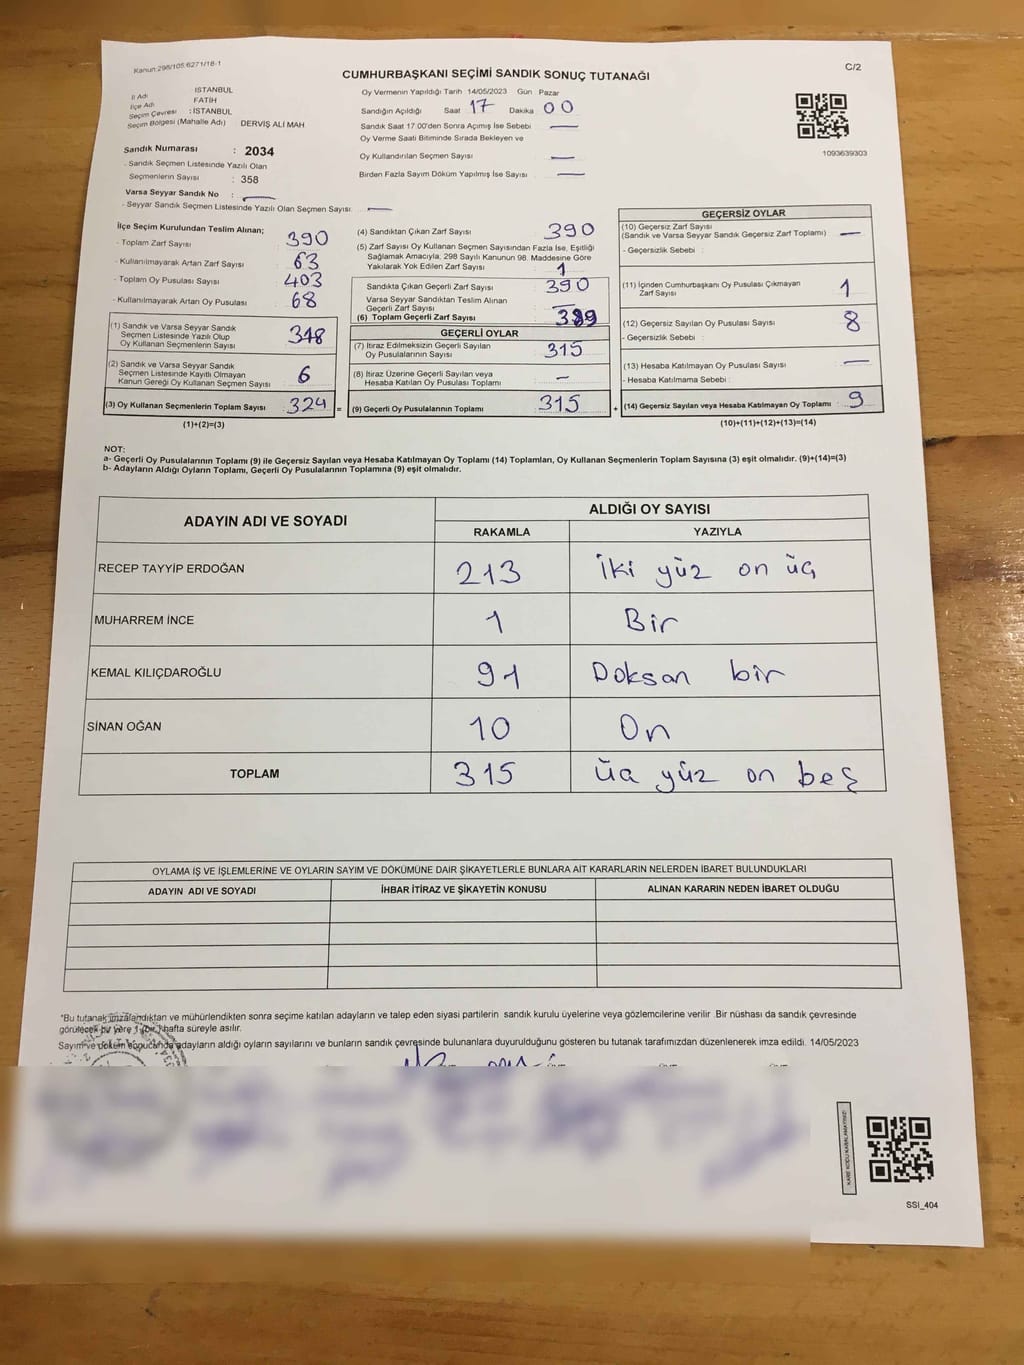 Kanun:298/105.6271/18-1
CUMHURBAŞKANI SEÇİMİ SANDIK SONUÇ TUTANAĞI
C/2
İl Adı : İSTANBUL
İlçe Adı FATİH
Seçim Çevresi : İSTANBUL
Seçim Bölgesi (Mahalle Adı) DERVİŞ ALİ MAH
Sandık Numarası : 2034
- Sandık Seçmen Listesinde Yazılı Olan
Seçmenlerin Sayısı : 358
Varsa Seyyar Sandık No : —
- Seyyar Sandık Seçmen Listesinde Yazılı Olan Seçmen Sayısı: —
Oy Vermenin Yapıldığı Tarih 14/05/2023 Gün Pazar
Sandığın Açıldığı Saat 17 Dakika 00
Sandık Saat 17.00'den Sonra Açımış İse Sebebi —
Oy Verme Saati Bitiminde Sırada Bekleyen ve
Oy Kullandırılan Seçmen Sayısı —
Birden Fazla Sayım Döküm Yapılmış İse Sayısı —
1093639303
İlçe Seçim Kurulundan Teslim Alınan;
- Toplam Zarf Sayısı 390
- Kullanılmayarak Artan Zarf Sayısı 63
- Toplam Oy Pusulası Sayısı 403
- Kullanılmayarak Artan Oy Pusulası 68
(1) Sandık ve Varsa Seyyar Sandık
Seçmen Listesinde Yazılı Olup
Oy Kullanan Seçmenlerin Sayısı 318
(2) Sandık ve Varsa Seyyar Sandık
Seçmen Listesinde Kayıtlı Olmayan
Kanun Gereği Oy Kullanan Seçmen Sayısı 6
(3) Oy Kullanan Seçmenlerin Toplam Sayısı 324 =
(1)+(2)=(3)
(4) Sandıktan Çıkan Zarf Sayısı 390
(5) Zarf Sayısı Oy Kullanan Seçmen Sayısından Fazla İse, Eşitliği
Sağlamak Amacıyla, 298 Sayılı Kanunun 98. Maddesine Göre
Yakılarak Yok Edilen Zarf Sayısı 1
Sandıkta Çıkan Geçerli Zarf Sayısı 390
Varsa Seyyar Sandıktan Teslim Alınan
Geçerli Zarf Sayısı —
(6) Toplam Geçerli Zarf Sayısı 389
GEÇERLİ OYLAR
(7) İtiraz Edilmeksizin Geçerli Sayılan
Oy Pusulalarının Sayısı 315
(8) İtiraz Üzerine Geçerli Sayılan veya
Hesaba Katılan Oy Pusulası Toplamı —
(9) Geçerli Oy Pusulalarının Toplamı 315 +
GEÇERSİZ OYLAR
(10) Geçersiz Zarf Sayısı
(Sandık ve Varsa Seyyar Sandık Geçersiz Zarf Toplamı) —
- Geçersizlik Sebebi :
(11) İçinden Cumhurbaşkanı Oy Pusulası Çıkmayan
Zarf Sayısı 1
(12) Geçersiz Sayılan Oy Pusulası Sayısı 8
- Geçersizlik Sebebi :
(13) Hesaba Katılmayan Oy Pusulası Sayısı —
- Hesaba Katılmama Sebebi :
(14) Geçersiz Sayılan veya Hesaba Katılmayan Oy Toplamı : 9
(10)+(11)+(12)+(13)=(14)
NOT:
a- Geçerli Oy Pusulalarının Toplamı (9) ile Geçersiz Sayılan veya Hesaba Katılmayan Oy Toplamı (14) Toplamları, Oy Kullanan Seçmenlerin Toplam Sayısına (3) eşit olmalıdır. (9)+(14)=(3)
b- Adayların Aldığı Oyların Toplamı, Geçerli Oy Pusulalarının Toplamına (9) eşit olmalıdır.
ADAYIN ADI VE SOYADI ALDIĞI OY SAYISI
RAKAMLA YAZIYLA
RECEP TAYYİP ERDOĞAN 213 İki yüz on üç
MUHARREM İNCE 1 Bir
KEMAL KILIÇDAROĞLU 91 Doksan bir
SİNAN OĞAN 10 On
TOPLAM 315 üç yüz on beş
OYLAMA İŞ VE İŞLEMLERİNE VE OYLARIN SAYIM VE DÖKÜMÜNE DAİR ŞİKAYETLERLE BUNLARA AİT KARARLARIN NELERDEN İBARET BULUNDUKLARI
ADAYIN ADI VE SOYADI İHBAR İTİRAZ VE ŞİKAYETİN KONUSU ALINAN KARARIN NEDEN İBARET OLDUĞU
*Bu tutanak imzalandıktan ve mühürlendikten sonra seçime katılan adayların ve talep eden siyasi partilerin sandık kurulu üyelerine veya gözlemcilerine verilir. Bir nüshası da sandık çevresinde
görülecek bir yere 1 (bir) hafta süreyle asılır.
Sayım ve döküm sonucunda adayların aldığı oyların sayılarını ve bunların sandık çevresinde bulunanlara duyurulduğunu gösteren bu tutanak tarafımızdan düzenlenerek imza edildi. 14/05/2023
KARE KODU KARALAMAYINIZ!
SSİ_404